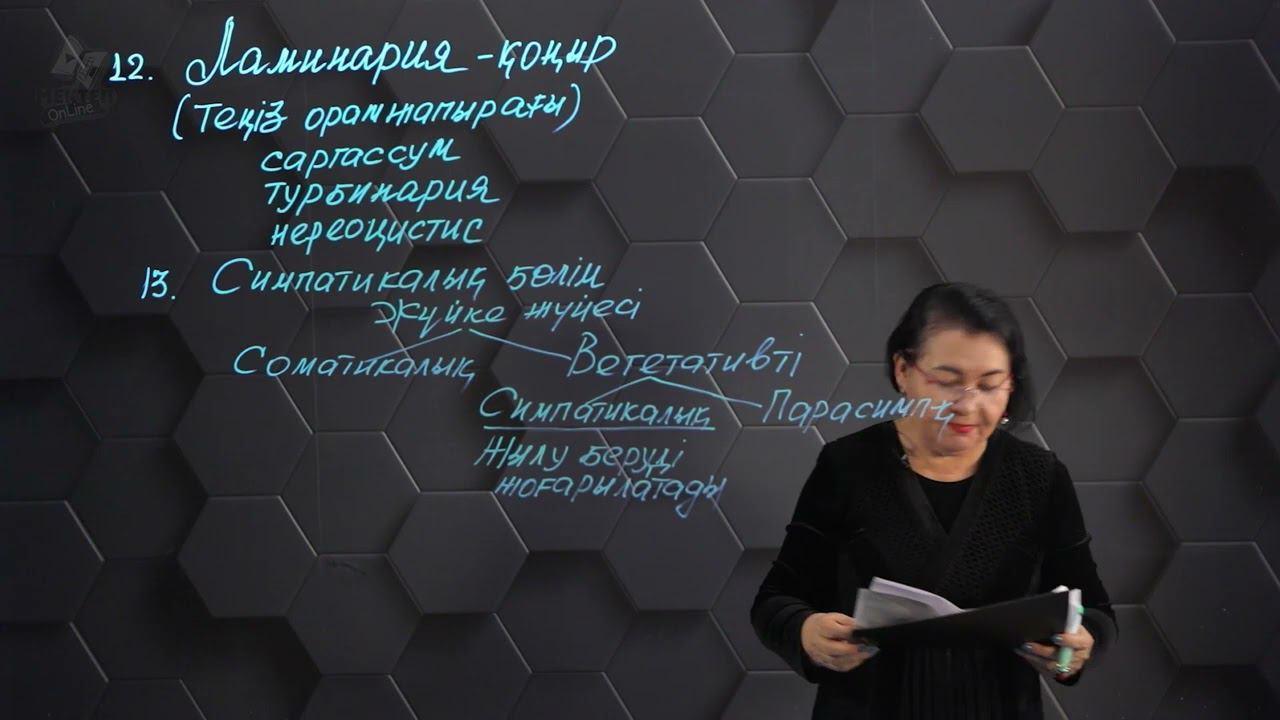 12. Ламинария - қоңыр
(теңіз орамжапырағы)
саргассум
турбинария
нереоцистис
13. Симпатикалық бөлім
Жүйке жүйесі
Соматикалық Вегетативті
Симпатикалық Парасимпқ
Жылу беруді
жоғарылатады
OnLine